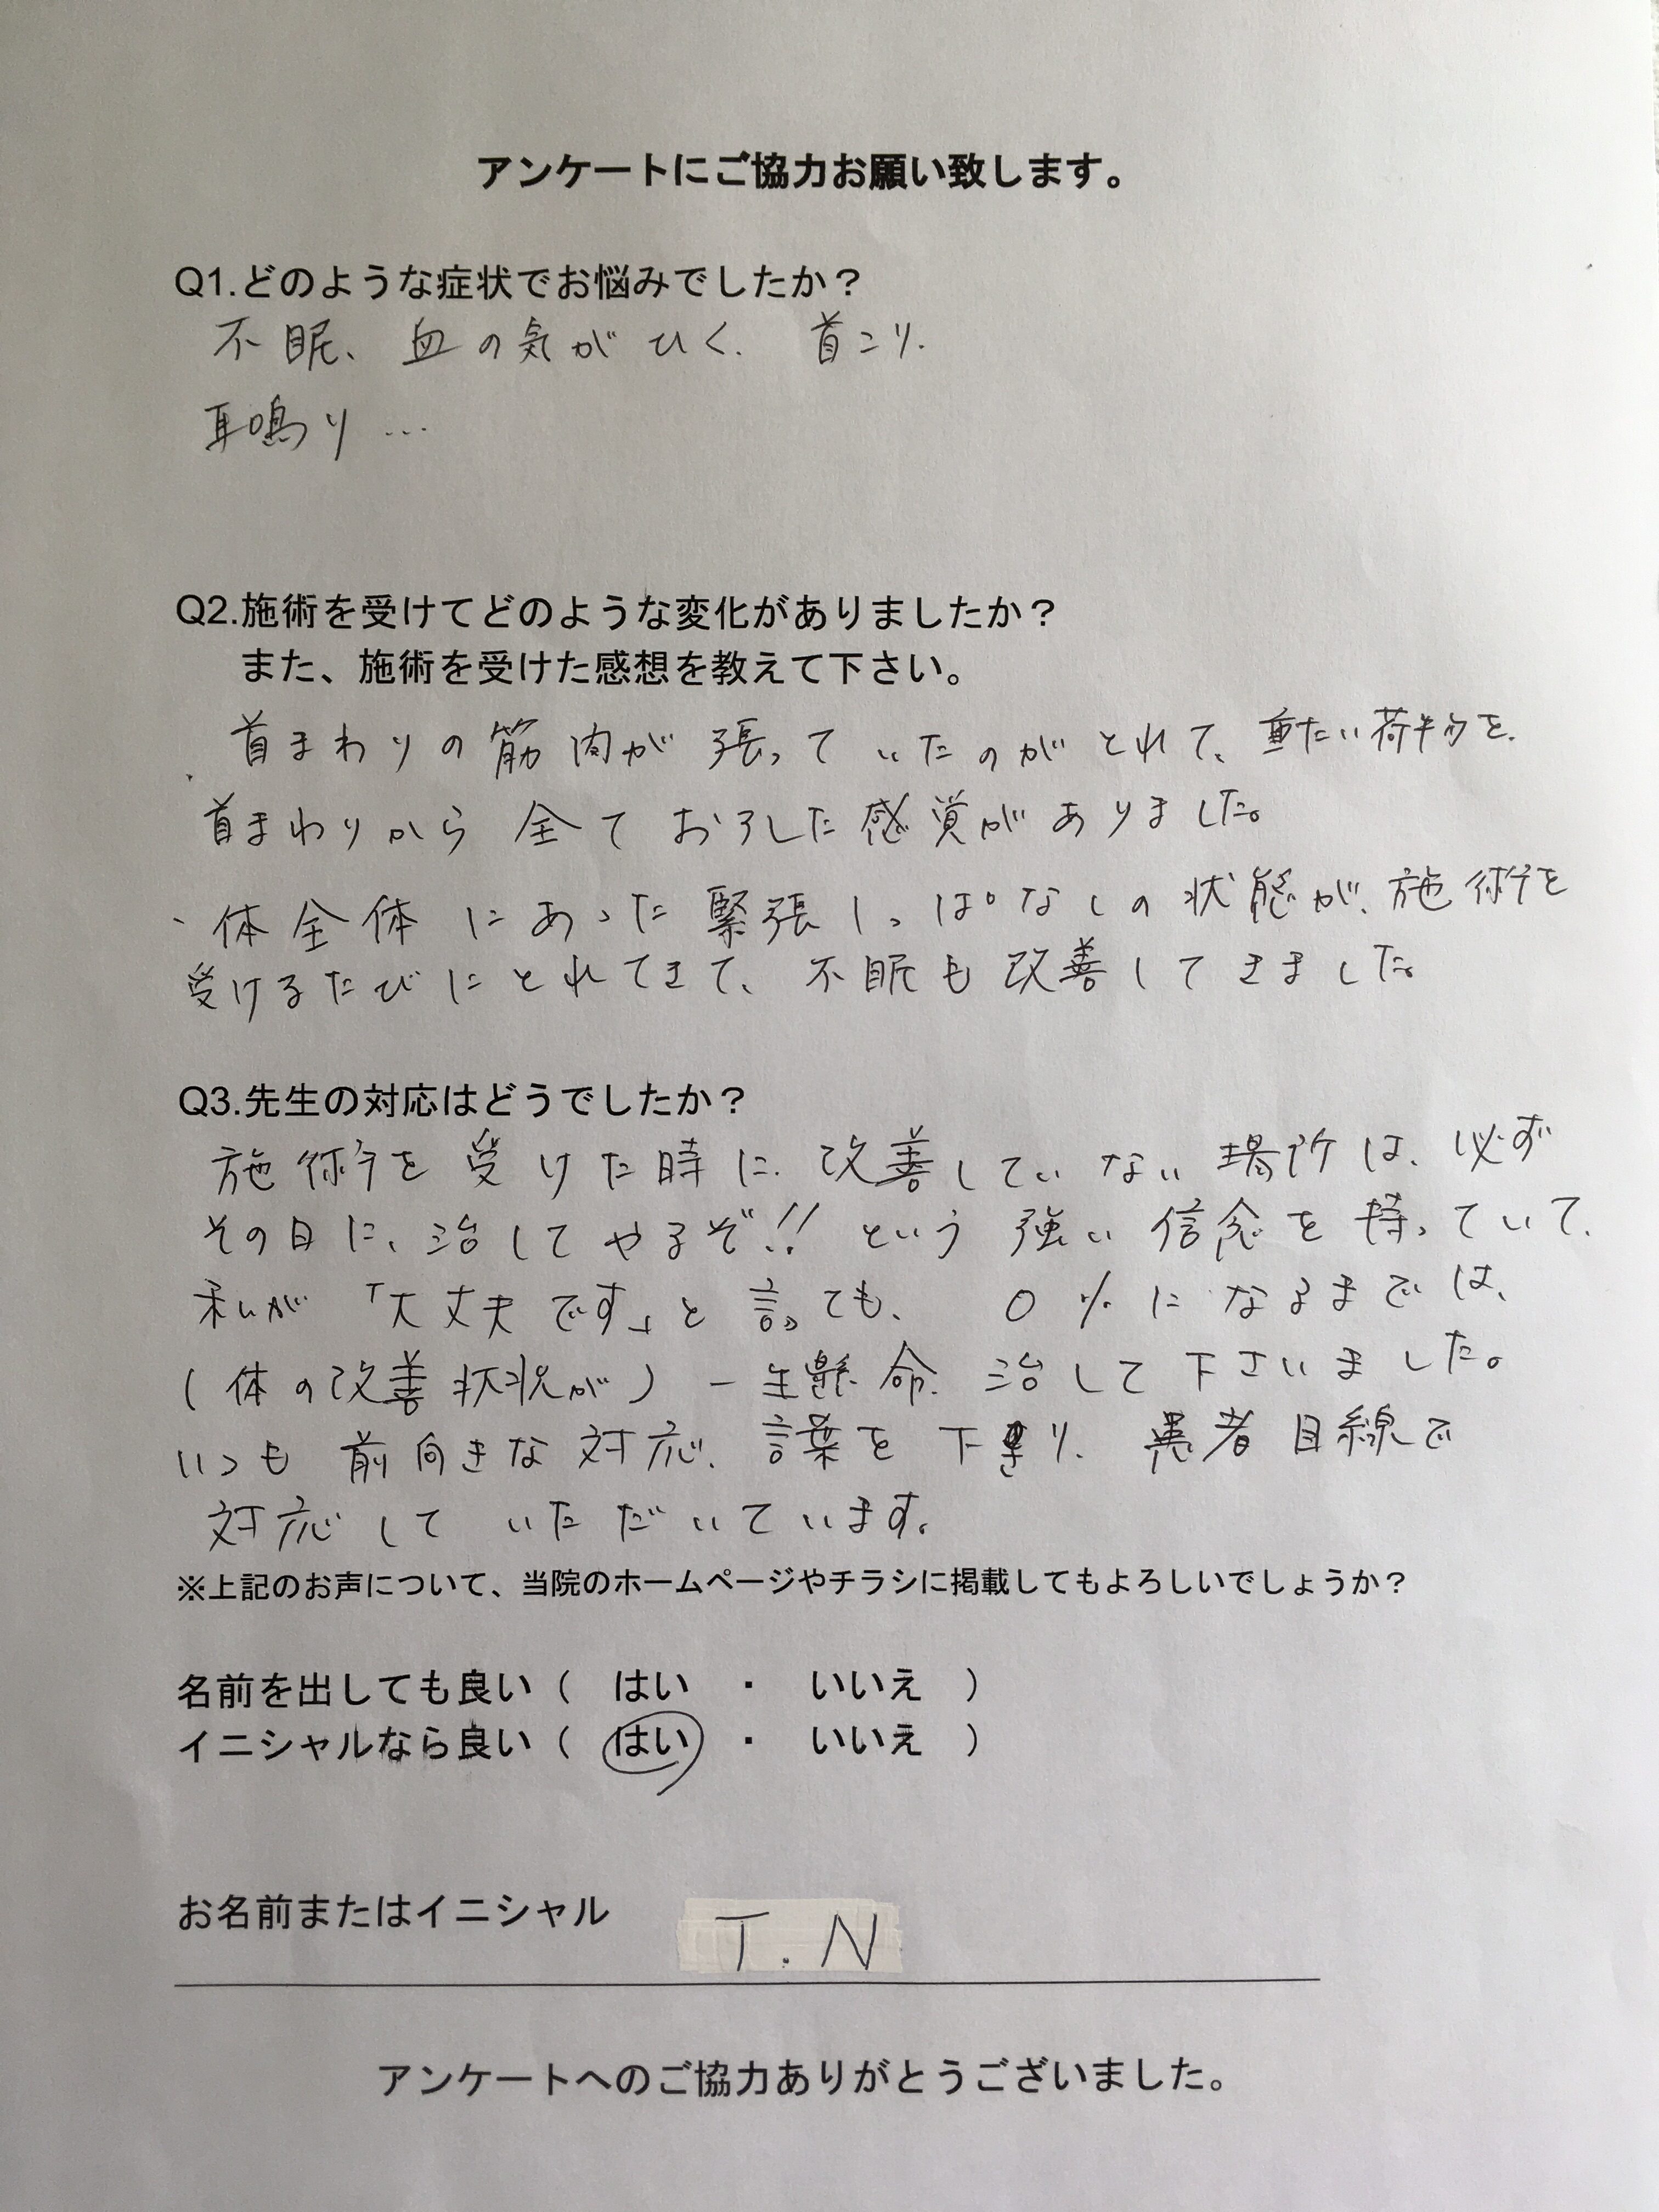 アンケートにご協力お願い致します。
Q1.どのような症状でお悩みでしたか？
不眠、血の気がひく、首こり、
耳鳴り…
Q2.施術を受けてどのような変化がありましたか？
また、施術を受けた感想を教えて下さい。
首まわりの筋肉が張っていたのがとれて、重たい荷物を、
首まわりから全ておろした感覚がありました。
・体全体にあった緊張しっぱなしの状態が、施術を
受けるたびにとれてきて、不眠も改善してきました。
Q3.先生の対応はどうでしたか？
施術を受けた時に、改善していない場所は、必ず
その日に、治してやるぞ!!という強い信念を持っていて、
私が「大丈夫です」と言っても、0%になるまでは、
(体の改善状況が)一生懸命、治して下さいました。
いつも前向きな対応、言葉を下さり、患者目線で
対応していただいています。
※上記のお声について、当院のホームページやチラシに掲載してもよろしいでしょうか？
名前を出しても良い（　はい　・　いいえ　）
イニシャルなら良い（　はい　・　いいえ　）
お名前またはイニシャル　T.N
アンケートへのご協力ありがとうございました。